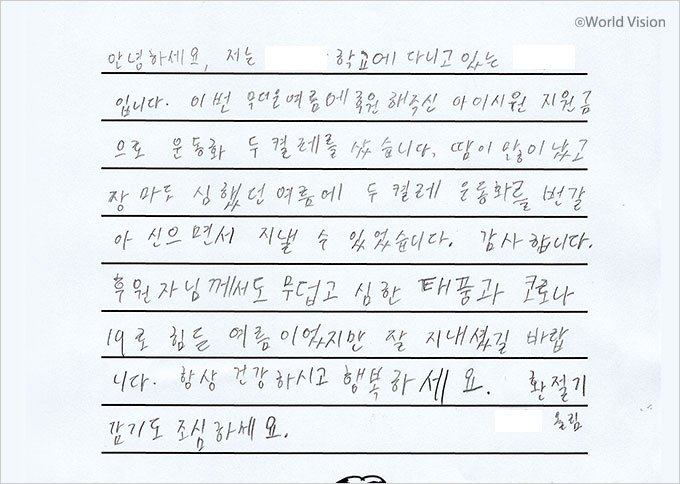 ©World Vision
안녕하세요, 저는 학교에 다니고 있는
입니다. 이번 무더운여름에후원해주신 아이시원 지원금
으로 운동화 두켤레를 샀습니다. 땀이 많이 났고
장마도 심했던 여름에 두켤레 운동화를 번갈
아 신으면서 지낼 수 있었습니다. 감사합니다.
후원자님께서도 무덥고 심한 태풍과 코로나
19로 힘든 여름이었지만 잘 지내셨길 바랍
니다. 항상 건강하시고 행복하세요. 환절기
감기도 조심하세요. 올림